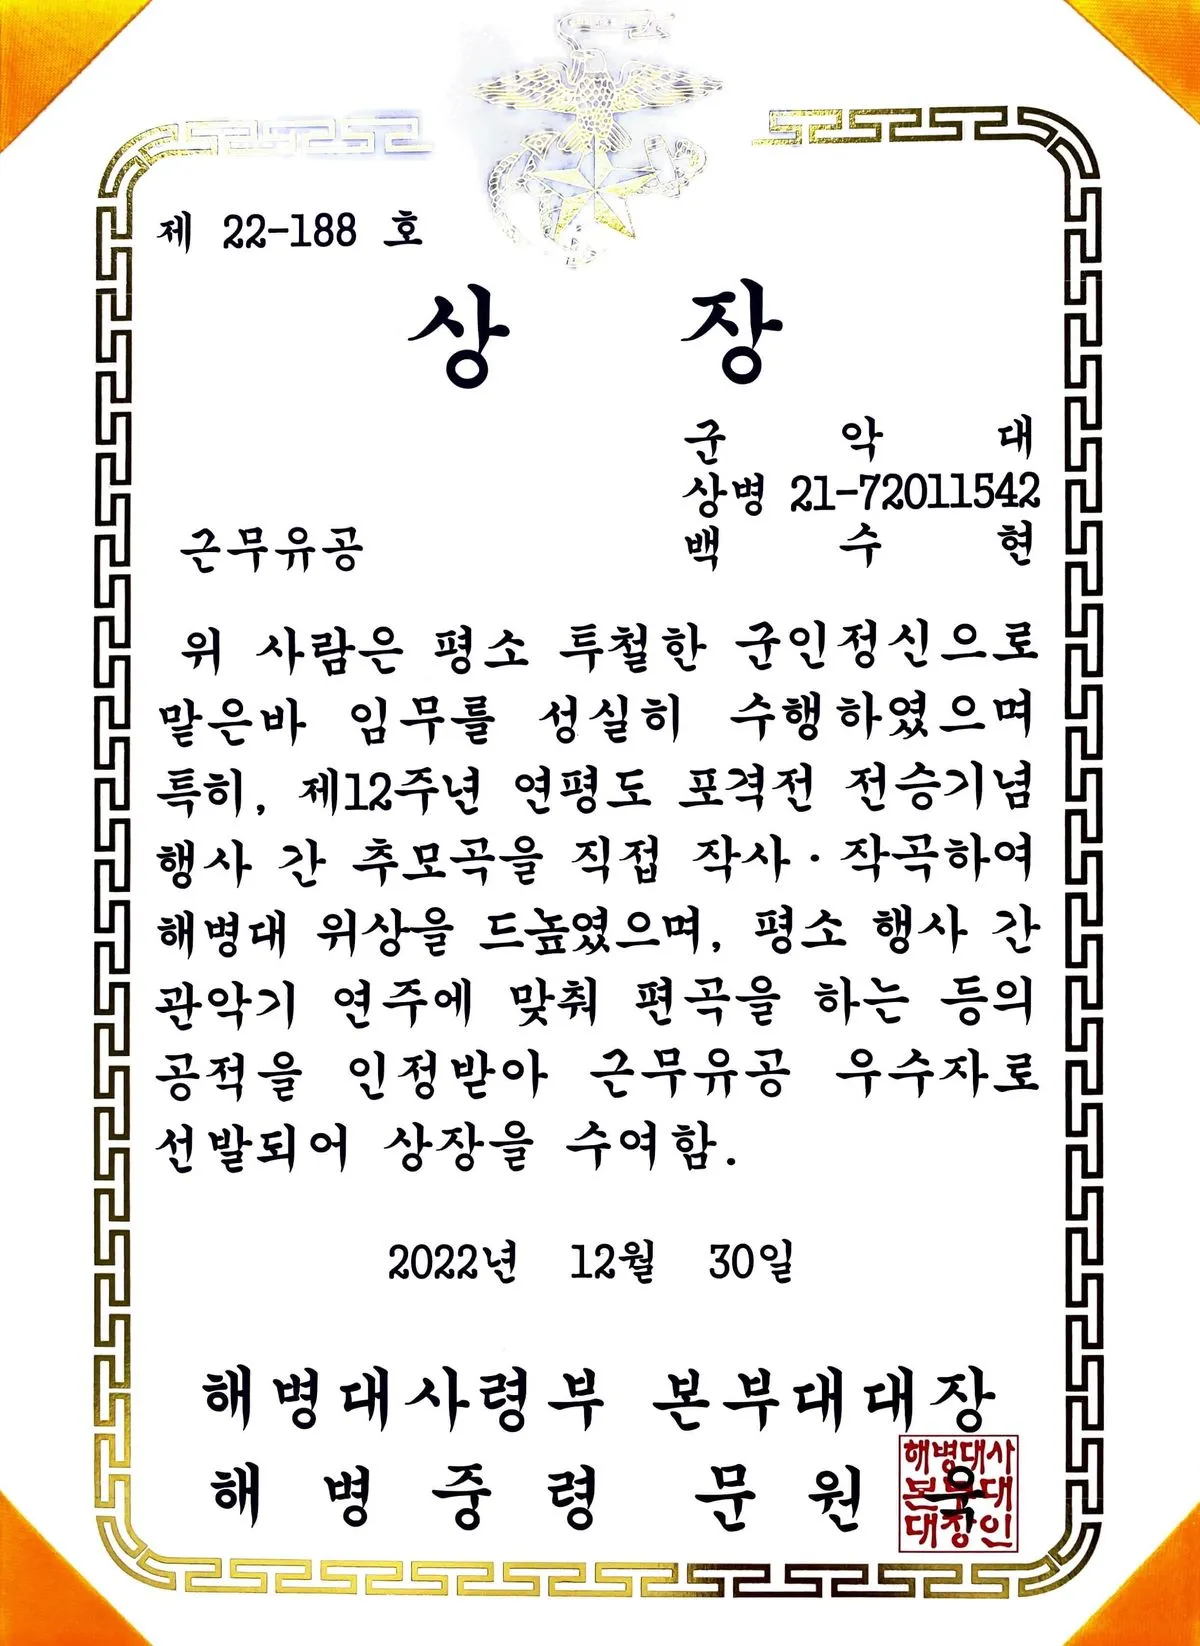 제 22-188 호
상 장
군 악 대
상병 21-72011542
근무유공 백 수 현
위 사람은 평소 투철한 군인정신으로
맡은바 임무를 성실히 수행하였으며
특히, 제12주년 연평도 포격전 전승기념
행사 간 추모곡을 직접 작사·작곡하여
해병대 위상을 드높였으며, 평소 행사 간
관악기 연주에 맞춰 편곡을 하는 등의
공적을 인정받아 근무유공 우수자로
선발되어 상장을 수여함.
2022년 12월 30일
해병대사령부 본부대대장
해 병 중 령 문 원 욱
해병대사
본부대
대장인